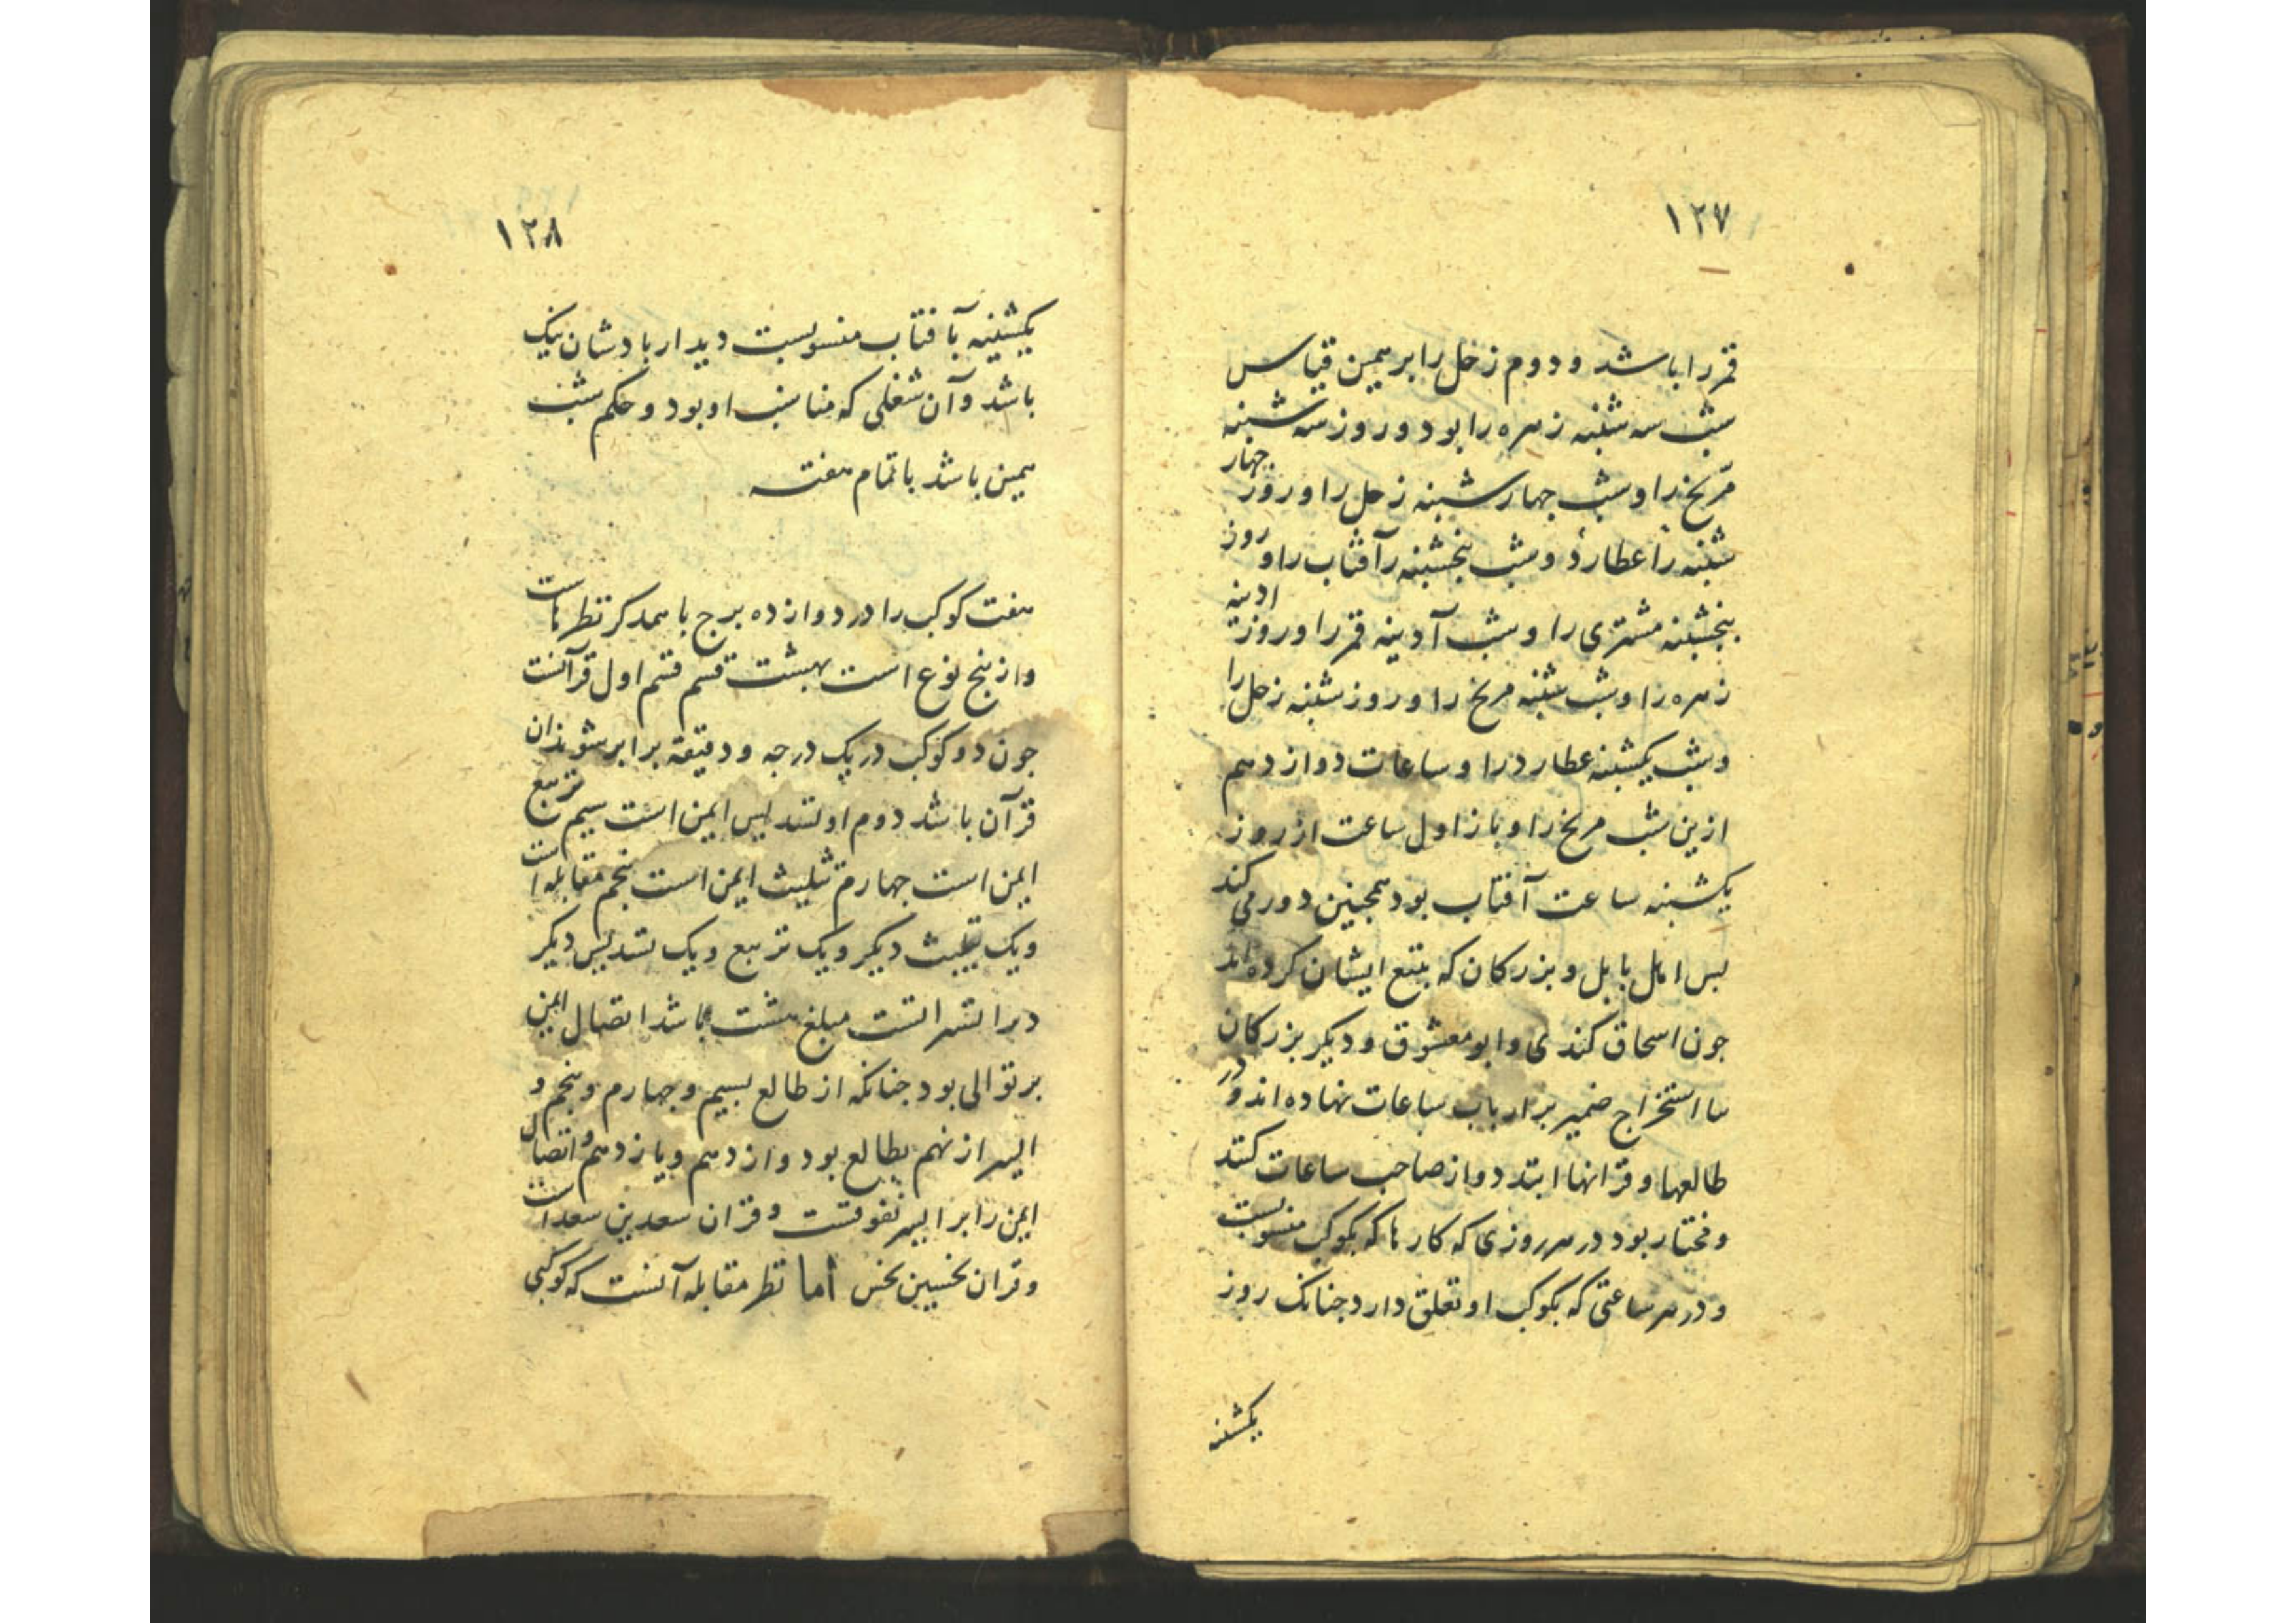 ۱۲۷
قمر را باشد و دوم زحل را بر همین قیاس
شب سه شنبه زهره را بود و روز سه شنبه
مریخ را و شب جهار شنبه زحل را و روز جهار
شنبه را عطارد و شب پنجشنبه را آفتاب را و روز
پنجشنبه مشتری را و شب آدینه قمر را و روز ادینه
زهره را و شب شنبه مریخ را و روز شنبه زحل را
و شب یکشنبه عطارد را و ساعات دوازدهم
ازین شب مریخ را و باز اول ساعت از روز
یکشنبه ساعت آفتاب بود همجنین دور می کند
بس اهل بابل و بزرکان که بتبع ایشان کرده اند
جون اسحاق کندی و ابو معشوق و دیکر بزرکان
سا استخراج ضمیر بر ارباب ساعات نهاده اند و در
طالعها و قرانها ابتدا و از صاحب ساعات کنند
و مختار بود در هر روزی که کارها که بکوکب منسوبست
و در هر ساعتی که بکوکب او تعلق دارد جنانک روز
یکشنبه
۱۲۸
یکشنبه بآفتاب منسوبست دیدار بادشان نیک
باشد و آن شغلی که مناسب او بود و حکم شب
همین باشد با تمام هفته
هفت کوکب را در دوازده برج با همدکر نظرهاست
و از پنج نوع است بهشت قسم قسم اول قرآنست
جون دو کوکب در یک درجه و دقیقه برابر شوند ان
قرآن باشد دوم او تسدیس ایمن است سیم تربیع
ایمن است جهارم تثلیث ایمن است پنجم مقابله است
و یک تثلیث دیکر و یک تربیع و یک تسدیس دیکر
مبلغ هشت باشد اتصال ایمن
بر توالی بود جنانکه از طالع بسیم و جهارم و پنجم و
الیسر از نهم بطالع بود و از دهم و یازدهم و اتصال
ایمن را بر الیسر تفوقست و قران سعدین سعد است
و قران نحسین نحس أما نظر مقابله آنست که کوکبی